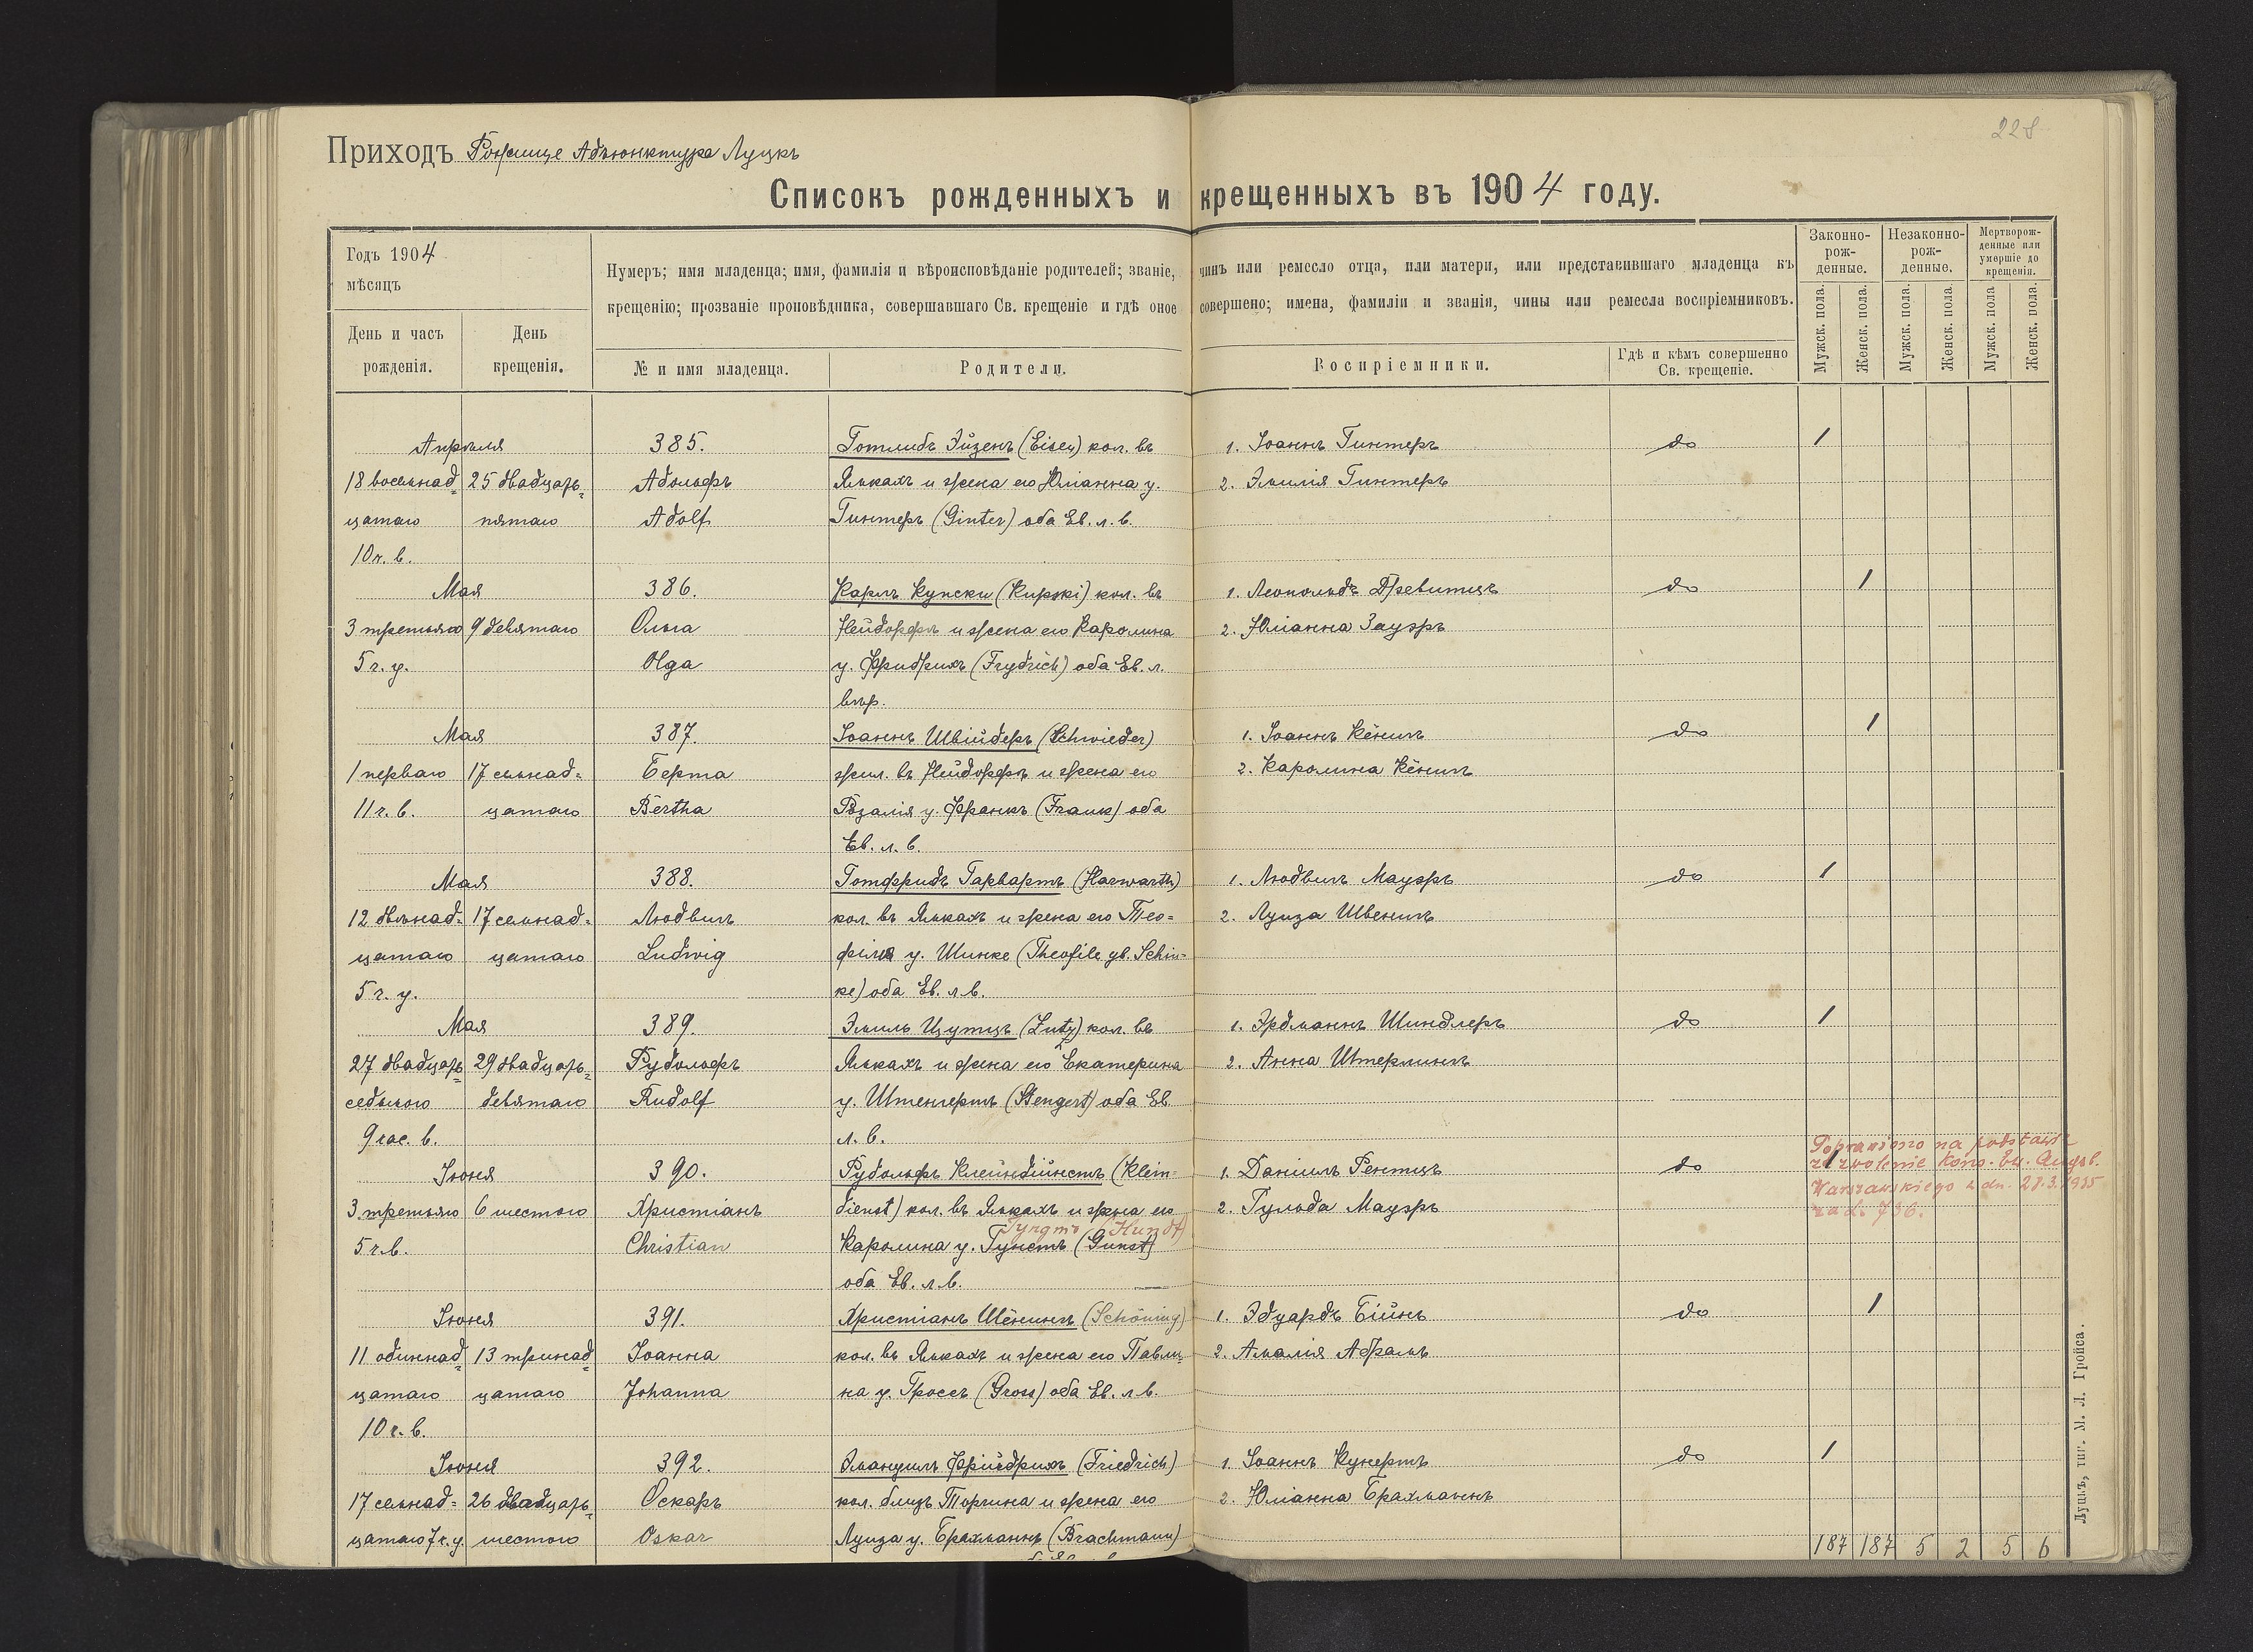 228
Приходъ Рожище Адъюнктура Луцкъ
Списокъ рожденныхъ и крещенныхъ въ 1904 году.
Годъ 1904
мѣсяцъ
День и часъ рожденія.
День крещенія.
Нумеръ; имя младенца; имя, фамилія и вѣроисповѣданіе родителей; званіе, чинъ или ремесло отца, или матери, или представившаго младенца къ
крещенію; прозваніе проповѣдника, совершавшаго Св. крещеніе и гдѣ оное совершено; имена, фамиліи и званія, чины или ремесла воспріемниковъ.
№ и имя младенца.
Родители.
Воспріемники.
Гдѣ и кѣмъ совершенно Св. крещеніе.
Законно-рож-денные.
Незаконно-рож-денные.
Мертворож-денные или умершіе до крещенія.
Мужск. пола. Женск. пола. Мужск. пола. Женск. пола. Мужск. пола Женск. пола.
Апрѣля 385. Готлибъ Эйзенъ (Eisen) кол. въ 1. Іоаннъ Гинтеръ до 1
18 восемнад= 25 двадцать= Адольфъ Яькахъ и жена его Юліанна у. 2. Эмилія Гинтеръ
цатаго пятаго Adolf Гинтеръ (Ginter) оба Ев. л. в.
10 ч. в.
Мая 386. Карлъ Купски (Kupski) кол. въ 1. Леопольдъ Древитцъ до 1
3 третьяго 9 девятаго Ольга Нейдорфѣ и жена его Каролина 2. Юліанна Зауэръ
5 ч. у. Olga у. Фридрихъ (Frydrich) оба Ев. л.
вѣр.
Мая 387. Іоаннъ Швійдеръ (Schwieder) 1. Іоаннъ Кёнигъ до 1
1 перваго 17 семнад= Берта жил. въ Нейдорфѣ и жена его 2. Каролина Кёнигъ
11 ч. в. цатаго Bertha Розалія у. Франкъ (Frank) оба
Ев. л. в.
Мая 388. Готфридъ Гарвартъ (Harwarth) 1. Людвигъ Мауэръ до 1
12 двѣнад= 17 семнад= Людвигъ кол. въ Яькахъ и жена его Тео= 2. Луиза Швенигъ
цатаго цатаго Ludwig філя у. Шинке (Theofile gb. Schin=
5 ч. у. ke) оба Ев. л. в.
Мая 389. Эмиль Цутцъ (Zutz) кол. въ 1. Эрдманнъ Шиндлеръ до 1
27 двадцать= 29 двадцать= Рудольфъ Яькахъ и жена его Екатерина 2. Анна Штерлингъ
седьмого девятаго Rudolf у. Штенгертъ (Stengert) оба Ев.
9 час. в. л. в.
Іюня 390. Рудольфъ Клейндійнстъ (Klein= 1. Даніилъ Рентцъ до 1
Poprawiono na podstawie
zezwolenie Kons. Ew. Augsb.
Warszawskiego z dn. 27.3.1935
za L. 736.
3 третьяго 6 шестого Христіанъ dienst) кол. въ Яькахъ и жена его 2. Гульда Мауэръ
Гундтъ (Hundt)
5 ч. в. Christian Каролина у. Гунстъ (Gunst)
оба Ев. л. в.
Іюня 391. Христіанъ Шёнингъ (Schöning) 1. Эдуардъ Бійнъ до 1
11 одиннад= 13 тринад= Іоанна кол. въ Яькахъ и жена его Павли= 2. Амалія Абрамъ
цатаго цатаго Johanna на у. Гроссъ (Gross) оба Ев. л. в.
10 ч. в.
Іюня 392. Эмануилъ Фрийдрихъ (Friedrich) 1. Іоаннъ Кунертъ до 1
17 семнад= 26 двадцать= Оскаръ кол. близъ Торчина и жена его 2. Юліанна Брахманнъ
цатаго 7 ч. у. шестого Oskar Луиза у. Брахманнъ (Brachmann)
187 187 5 2 5 6
Луцкъ, тип. М. Л. Гройса.